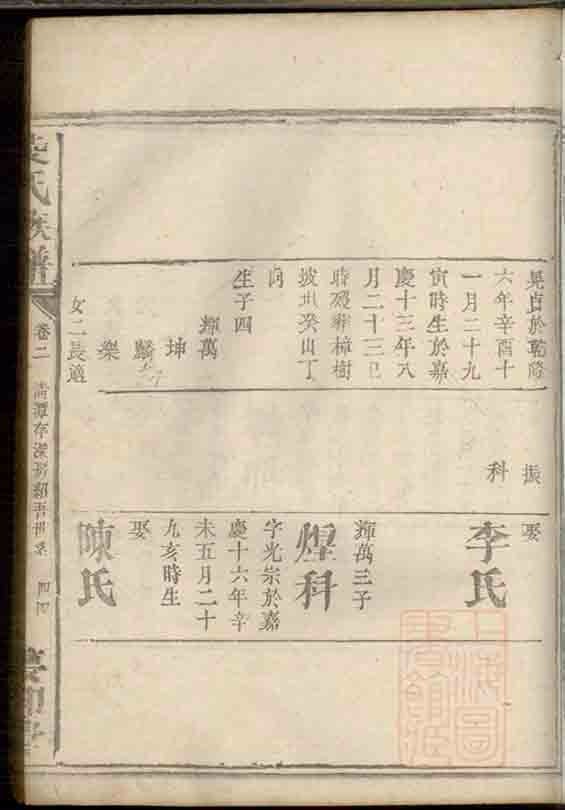 晃貞於乾隆
六年辛酉十
一月二十九
寅時生於嘉
慶十三年八
月二十三巳
時歿葬樟樹
坡丑癸山丁
向
生子四
輝萬
坤
麟
樂
女二長適
振
科
娶
李氏
輝萬三子
煌科
字光宗於嘉
慶十六年辛
未五月二十
九亥時生
娶
陳氏
氏族譜
卷二
四四
上海圖書館藏